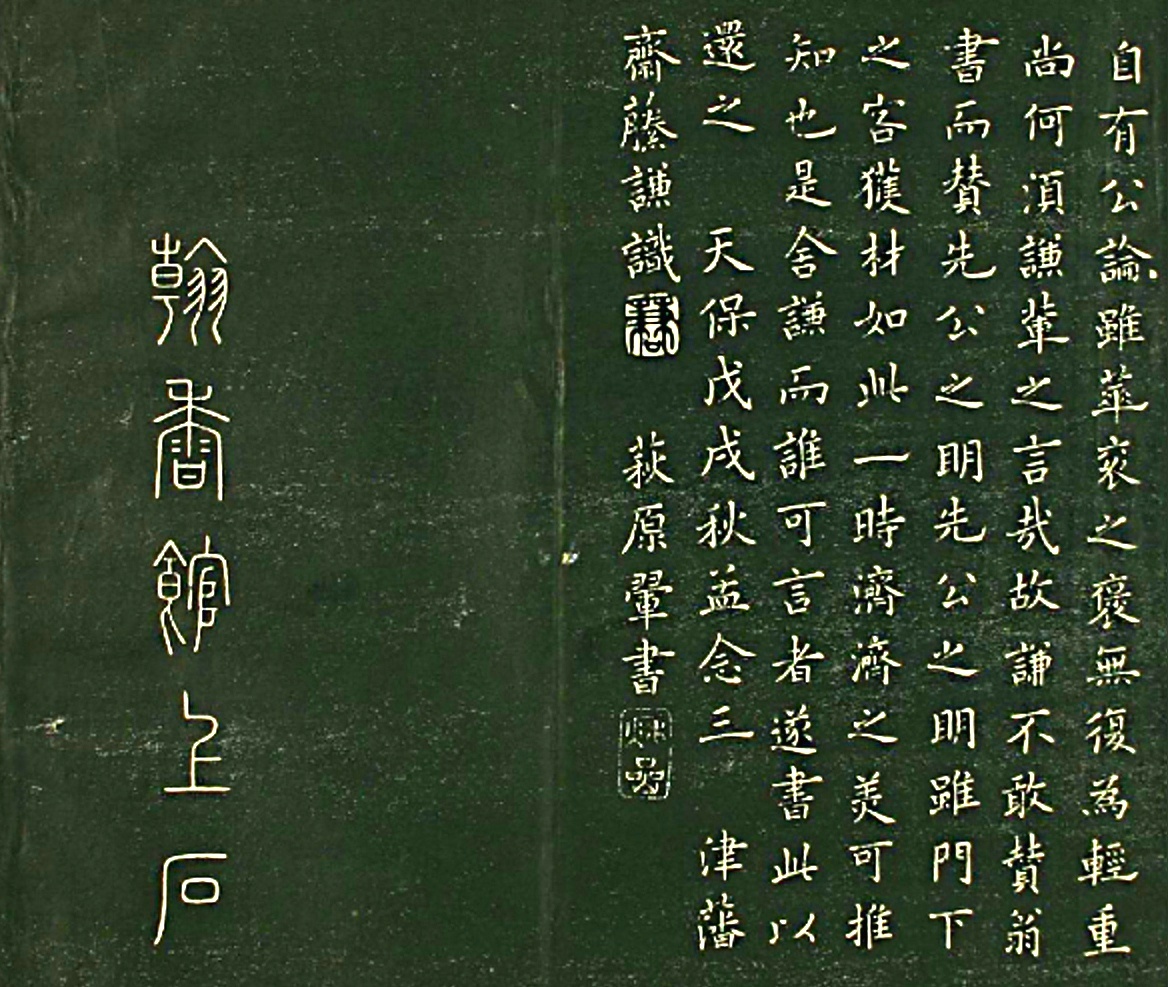 自有公論雖華衮之褒無復為輕重
尚何須謙輩之言哉故謙不敢賛翁
書而賛先公之明先公之明雖門下
之客獲材如此一時濟濟之美可推
知也是舍謙而誰可言者遂書此以
還之　天保戊戌秋孟念三　津藩
齋藤謙識　萩原翬書
翰香館上石